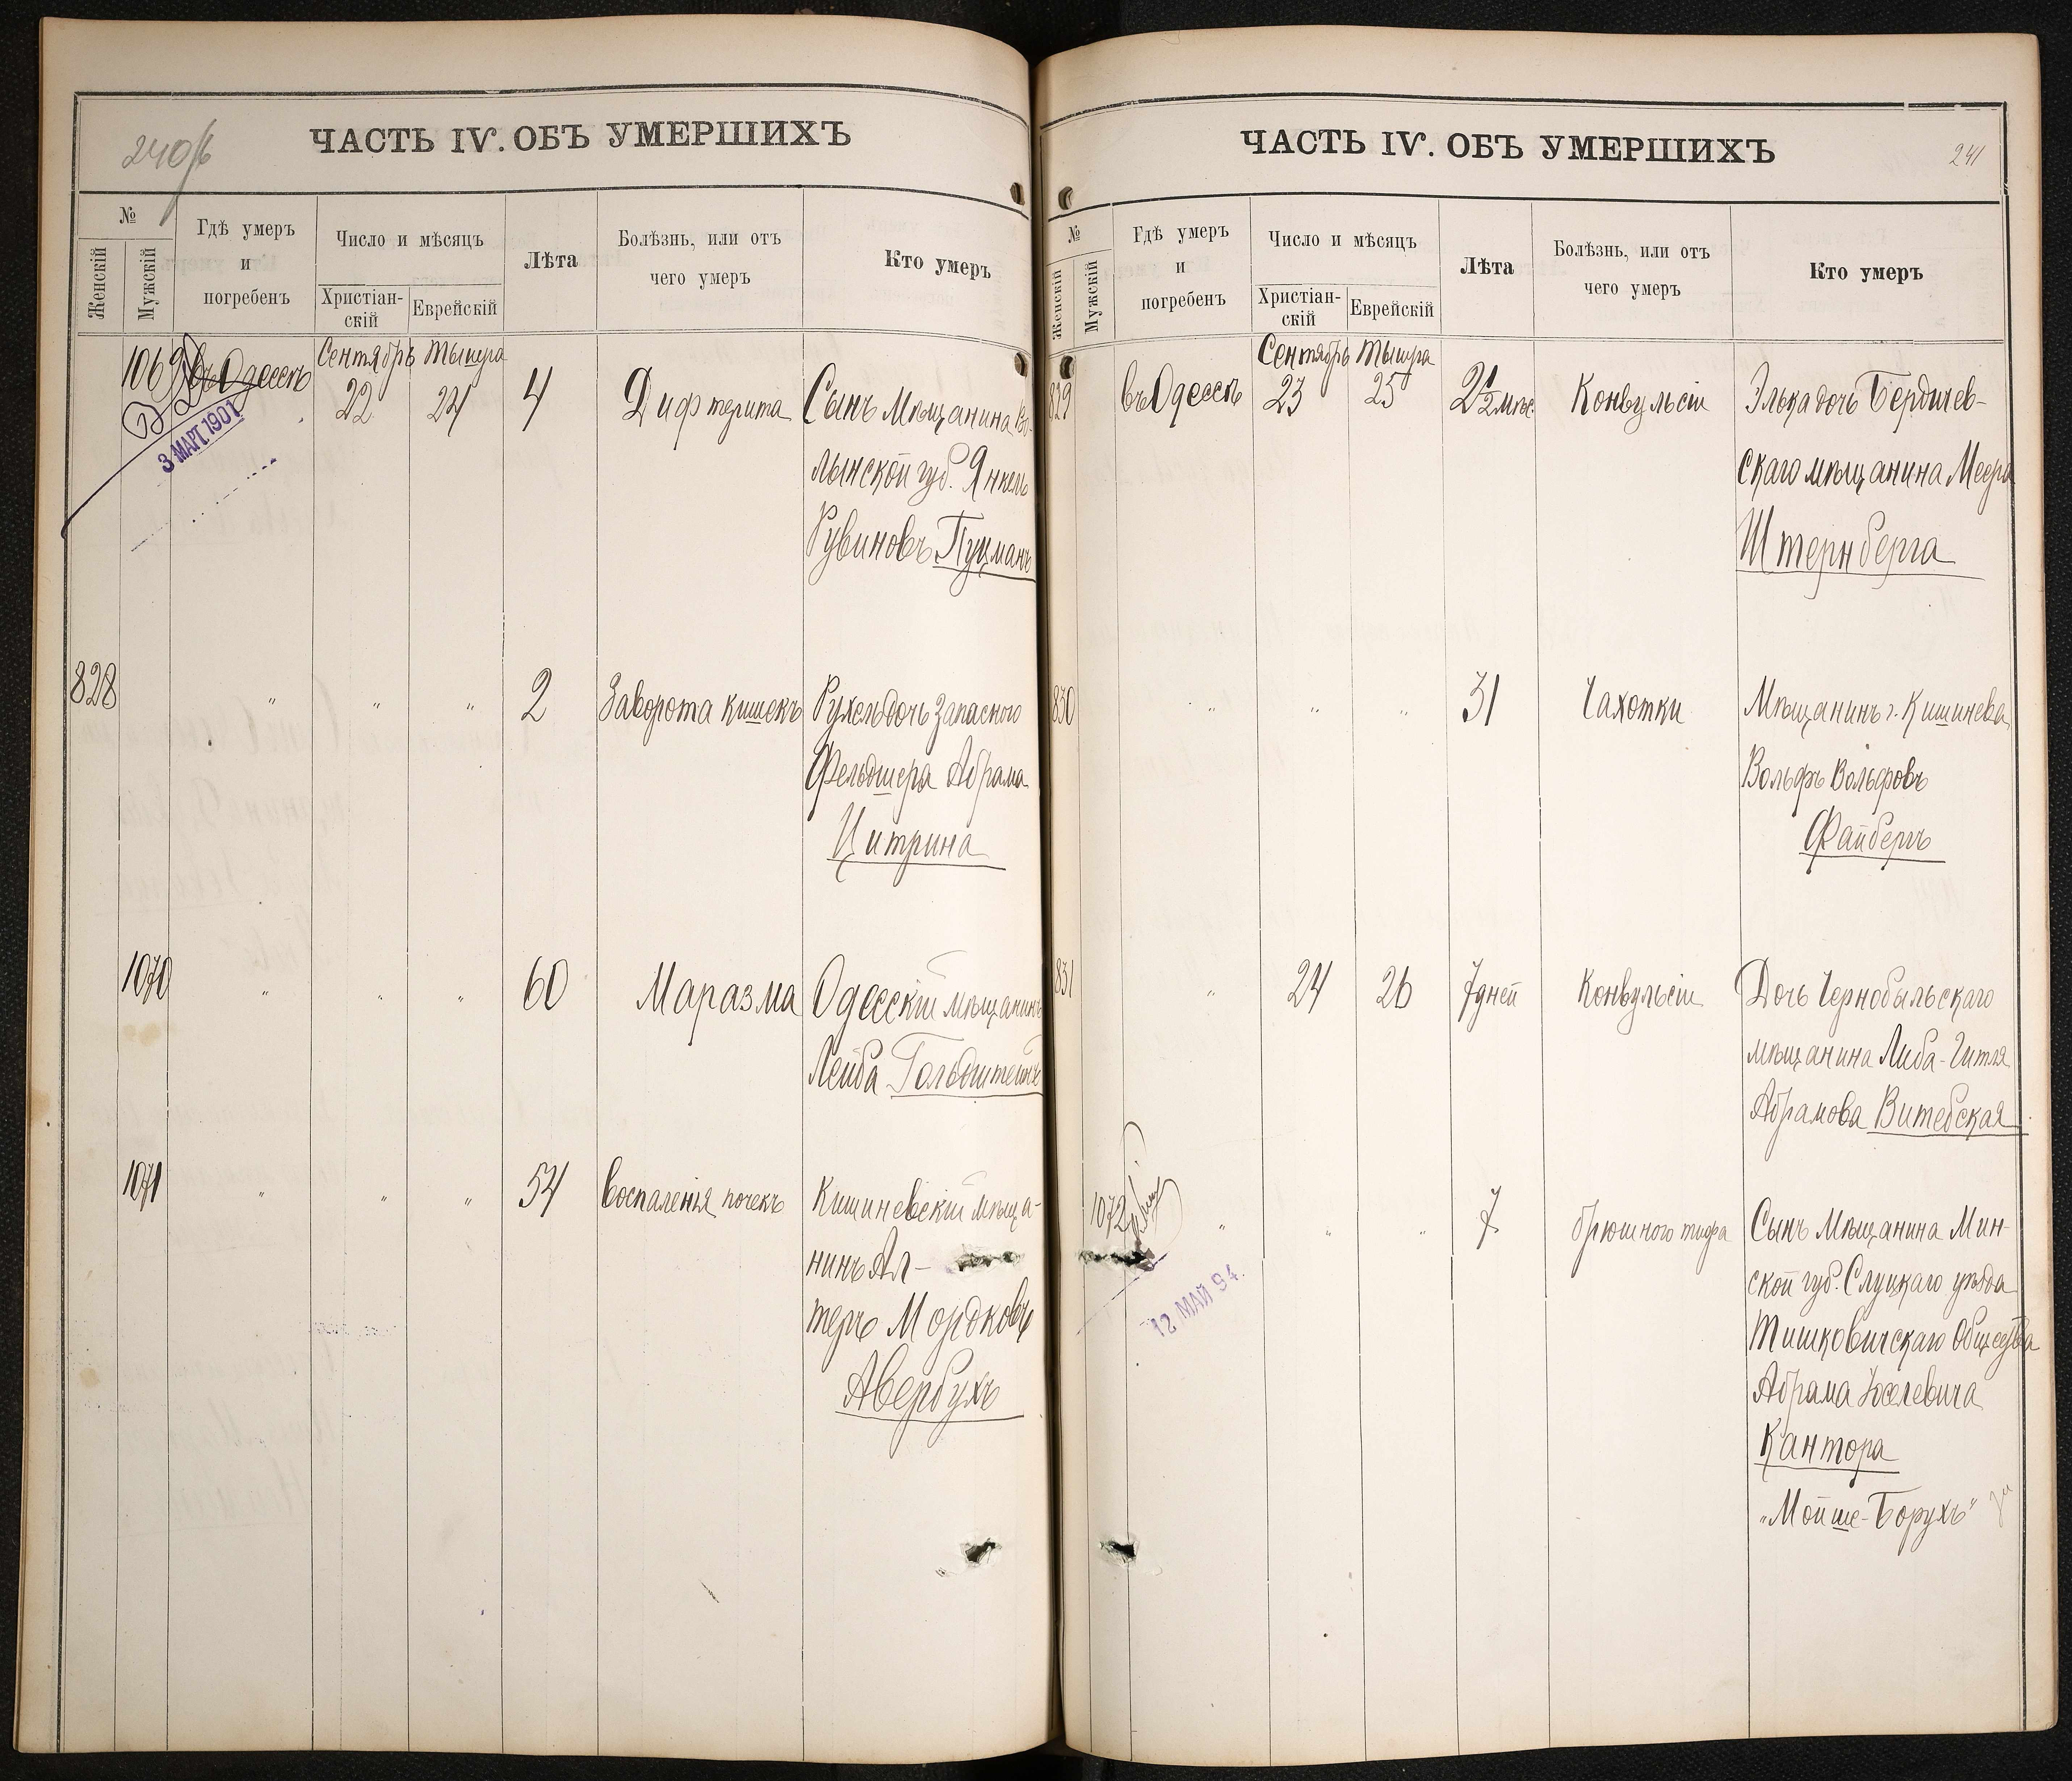 240/б
ЧАСТЬ IV. ОБЪ УМЕРШИХЪ
№
Женскій
Мужскій
Гдѣ умеръ
и
погребенъ
Число и мѣсяцъ
Христіан-
скій
Еврейскій
Лѣта
Болѣзнь, или отъ
чего умеръ
Кто умеръ
Сентябрь Тышра
1069 въ Одессѣ 22 24 4 Дифтерита Сынъ Мѣщанина Во-
3 МАРТ. 1901
лынской губ. Янкель
Рувиновъ Пуцманъ
828 " " " 2 Заворота кишекъ Рухель дочь Запасного
Фельдшера Абрама
Цитрина
1070 " " " 60 Маразма Одесскій мѣщанинъ
Лейба Гольдштейнъ
1071 " " " 54 Воспаленія почекъ Кишиневскій мѣща-
нинъ Ал-
теръ Мордковъ
Авербухъ
ЧАСТЬ IV. ОБЪ УМЕРШИХЪ
241
№
Женскій
Мужскій
Гдѣ умеръ
и
погребенъ
Число и мѣсяцъ
Христіан-
скій
Еврейскій
Лѣта
Болѣзнь, или отъ
чего умеръ
Кто умеръ
Сентябрь Тышра
829 въ Одессѣ 23 25 2 1/2 мѣс. Конвульсіи Элька дочь Бердичев-
скаго мѣщанина Меера
Штернберга
830 " " " 31 Чахотки Мѣщанинъ г. Кишинева
Вольфъ Вольфовъ
Файбергъ
831 " 24 26 7 дней Конвульсіи Дочь Чернобыльскаго
мѣщанина Либа-Гитля
Абрамова Витебская
1072 " " " 7 брюшного тифа Сынъ Мѣщанина Мин-
ской губ. Слуцкаго уѣзда
12 МАЙ 94.
Тишковичскаго Общества
Абрама Іоселевича
Кантора
"Мойше-Борухъ"